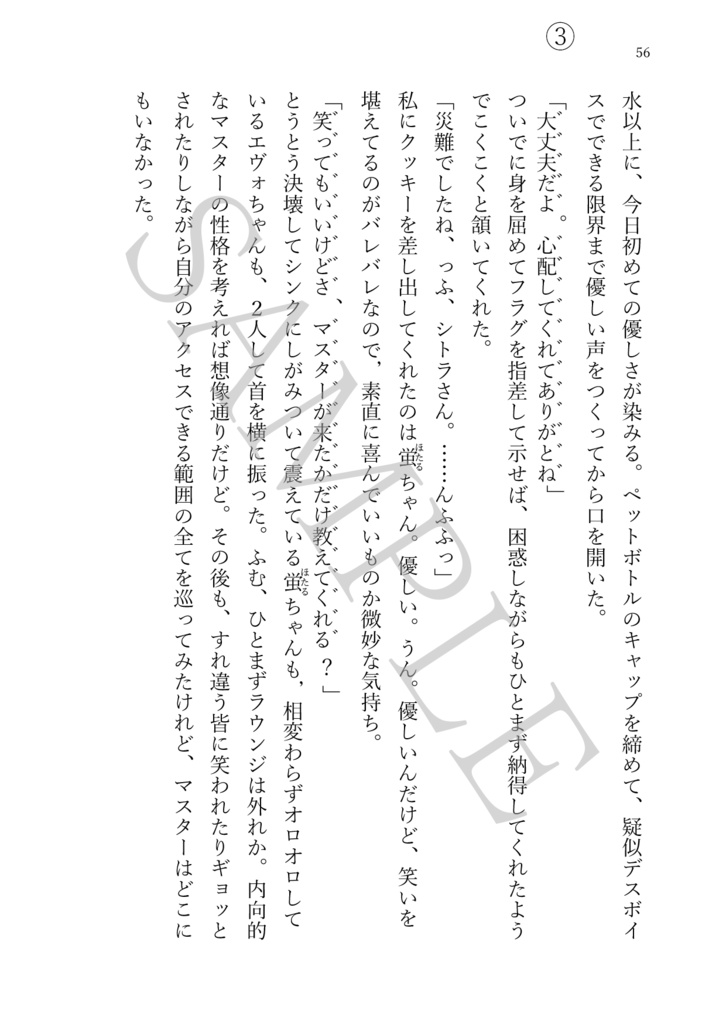 ③
56
水以上に、今日初めての優しさが染みる。ペットボトルのキャップを締めて、疑似デスボイ
スでできる限界まで優しい声をつくってから口を開いた。
「大゛丈゛夫゛だ゛よ゛。心゛配゛し゛て゛く゛れ゛て゛あ゛り゛が゛と゛ね゛」
ついでに身を屈めてフラグを指差して示せば、困惑しながらもひとまず納得してくれたよう
でこくこくと頷いてくれた。
「災難でしたね、っふ、シトラさん。……んふふっ」
私にクッキーを差し出してくれたのは蛍ほたるちゃん。優しい。うん。優しいんだけど、笑いを
堪えてるのがバレバレなので、素直に喜んでいいものか微妙な気持ち。
「笑゛っ゛て゛も゛い゛い゛け゛ど゛さ゛、マ゛ス゛タ゛ー゛が゛来゛た゛か゛だ゛け゛教゛え゛て゛く゛れ゛る゛？」
とうとう決壊してシンクにしがみついて震えている蛍ほたるちゃんも、相変わらずオロオロして
いるエヴォちゃんも、２人して首を横に振った。ふむ、ひとまずラウンジは外れか。内向的
なマスターの性格を考えれば想像通りだけど。その後も、すれ違う皆に笑われたりギョッと
されたりしながら自分のアクセスできる範囲の全てを巡ってみたけれど、マスターはどこに
もいなかった。
SAMPLE